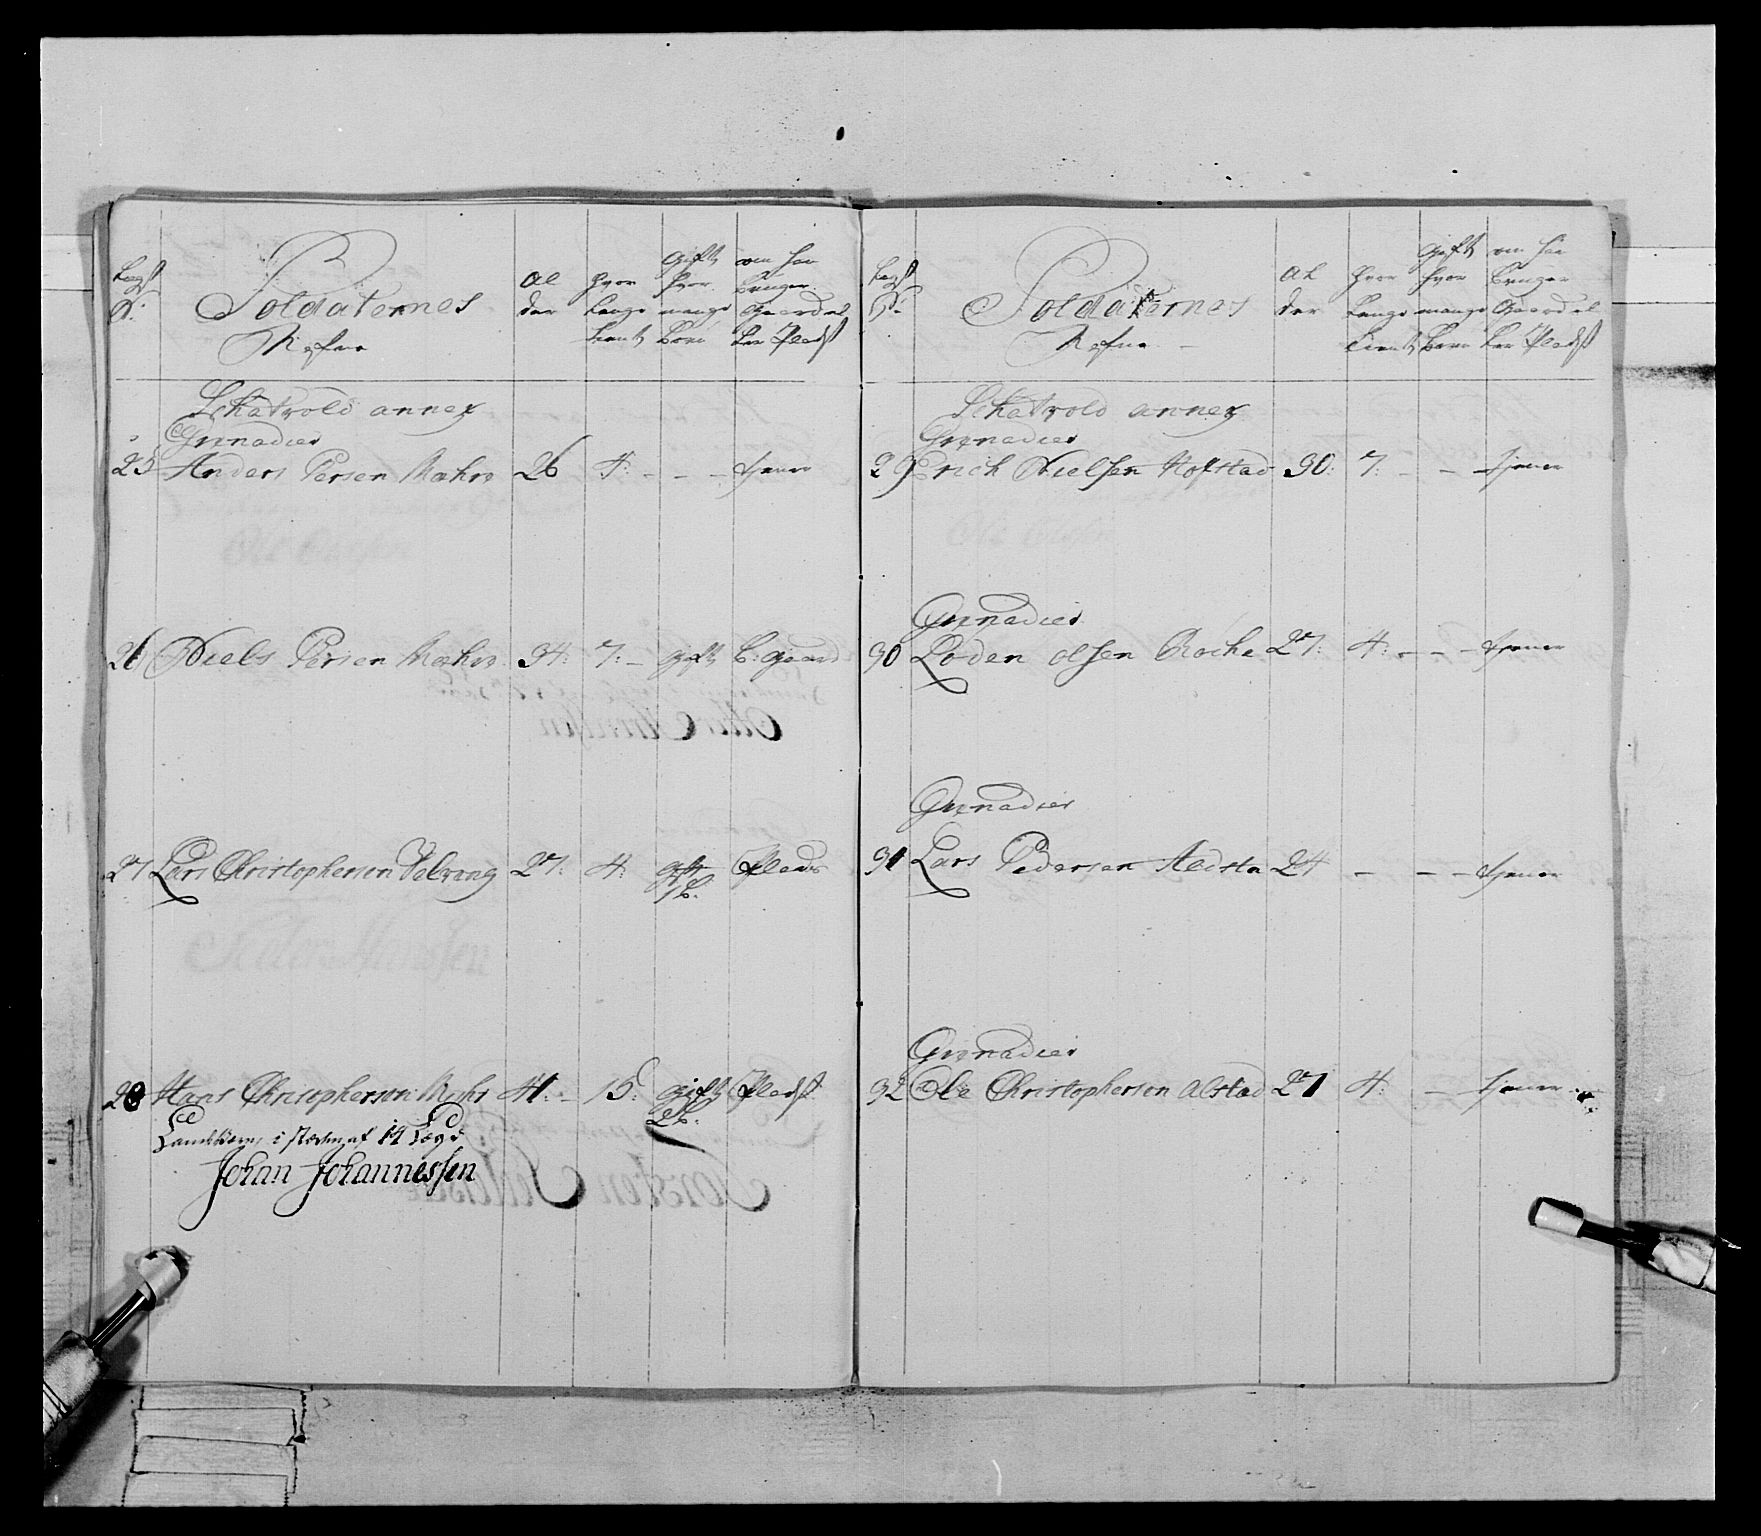 Soldaternes
Nafne
Al
der
hvor
Lenge
tient
Gift
hvor
mange
Børn
om han
Bruger
Gaard el
ler Pladß
Schatvold annex
Grenadier
25 Anders Persen Mæhre 26 4: - - - tiener
26 Niels Persen Mæhre 34: 7: - gift B: gaard
27 Lars Christophersen Velvang 27: 4: gift Plads
1 b:
28 Hans Christophersen Mæhr 41: - 15: Gift Pladß
2 b:
Landværn i steden af 14 Lægd
Johan Johannessen
Soldaternes
Nafne
Al
der
hvor
Lenge
tient
Gift
hvor
mange
Børn
om han
Bruger
Gaard el
ler Pladß
Schatvold annex
Grenadier
29 Erich Nielsen Hofstad 30: 7: - - tiener
Grenadier
30 Loden Olsen Roche 27: 4: - - - tiener
Grenadier
31 Lars Pedersen 24 - - - tiener
Grenadier
32 Ole Christophersen Alstad 27 4: - tiener